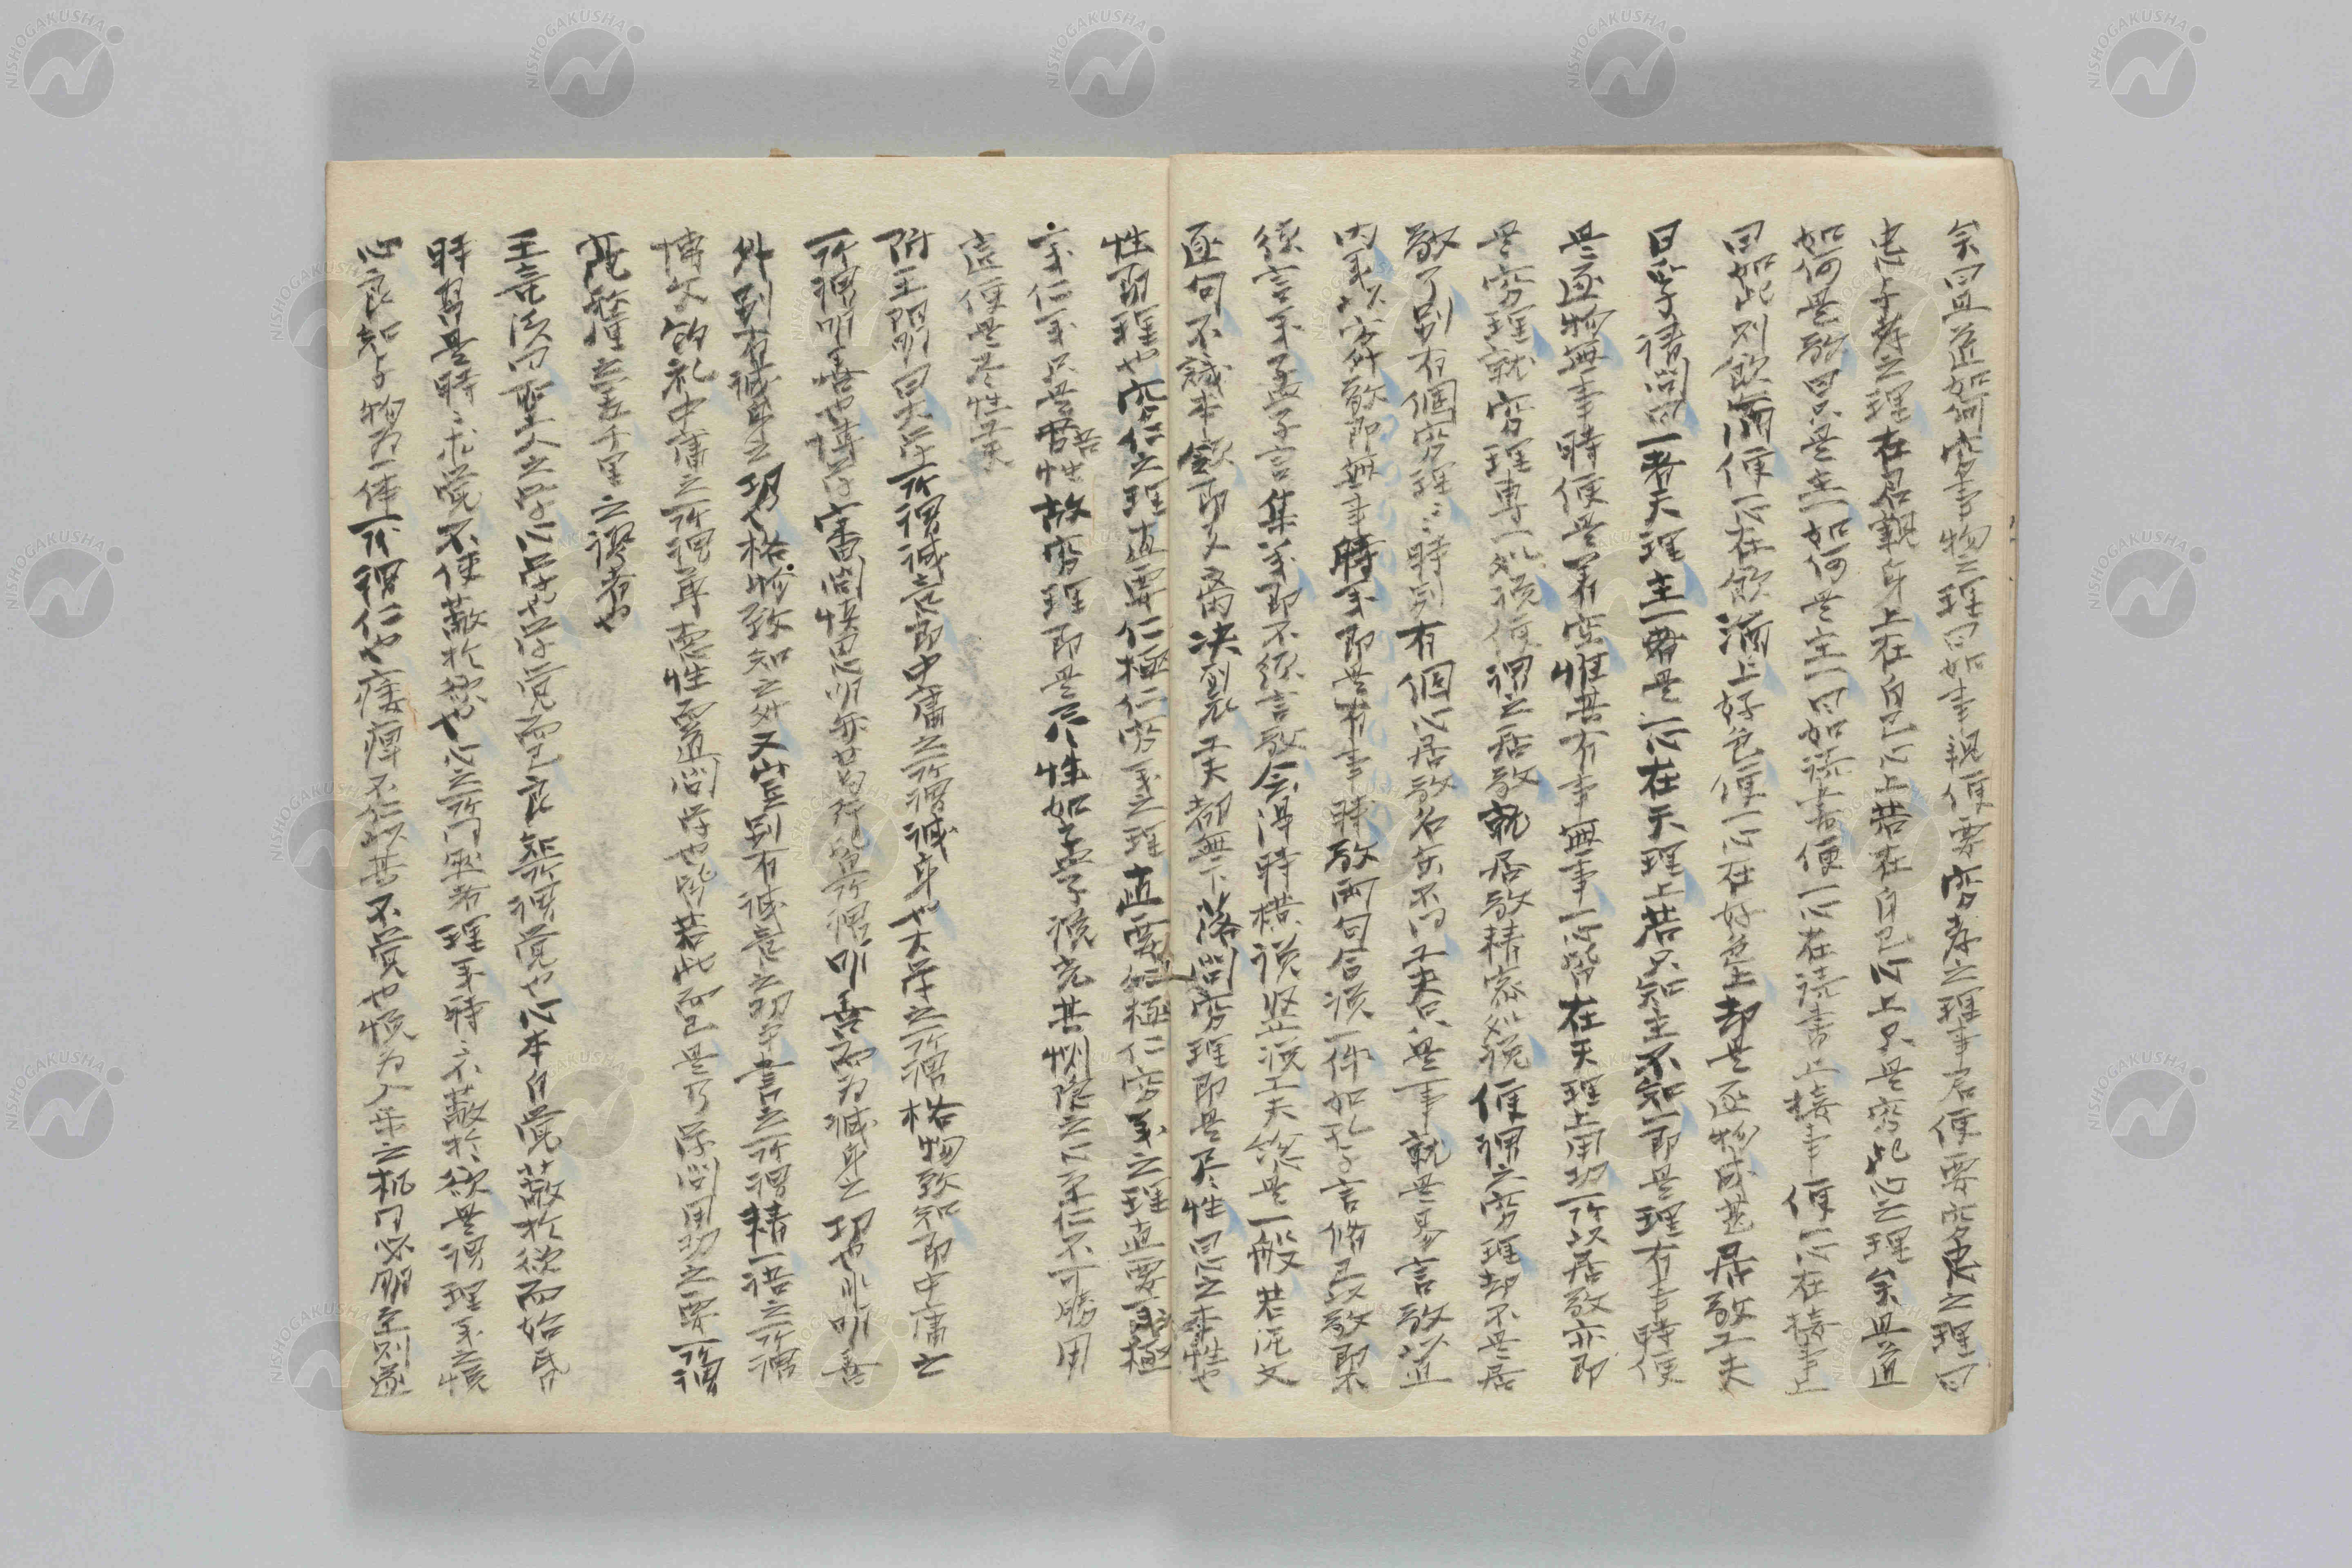 余曰且道如何窮事物之理曰如事親便要窮孝之理事君便要窮忠之理曰
忠与孝之理在君親身上在自己心上若在自己心上只是窮此心之理矣且道
如何是敬曰只是主一如何是主一曰如読書便一心在読書上接事便一心在接事上
曰如此則飲酒便一心在飲酒上好色便一心在好色上却是逐物成甚居敬工夫
日孚請問曰一者天理主一者是一心在天理上若只知主一不知一即是理有事時便
是逐物無事時便是着空惟其有事無事一心皆在天理上用功所以居敬亦即
是窮理就窮理専一処説便謂之居敬就居敬精密処説便謂之窮理却不是居
敬了別有個窮理窮理時別有個心居敬名雖不同工夫只是一事就是易言敬以直
内義以方外敬即無事時義即是有事時敬両句合説一件如孔子言修己以敬即不
須言義孟子言集義即不須言敬会得時横説竪説工夫総是一般若泥文
逐句不識本領即支离決裂工夫都無下落問窮理即是尽性曰心之本体性也
性即理也窮仁之理直要仁極仁窮義之理直要義極
義仁義只是吾性故窮理即是尽性如孟子説充其惻隠之心至仁不可勝用
這便是窮理工夫
附王陽明曰大学所謂誠意即中庸之所謂誠身也大学之所謂格物致知即中庸之
所謂明善也博学審問慎思明弁篤行皆所謂明善而為誠身之功也非明善
外別有誠身之功格物致知之外又豈別有誠意之功乎書之所謂精一語之所謂
博文約礼中庸之所謂尊徳性而道問学也皆若此而已是乃学問用功之要所謂
毫釐之差千里之謬者也
王竜渓曰聖人之学心学也学覚而已良知所謂覚也心本自覚蔽於欲而始昏
心良知与物為一体所謂仁也痿痺不仁